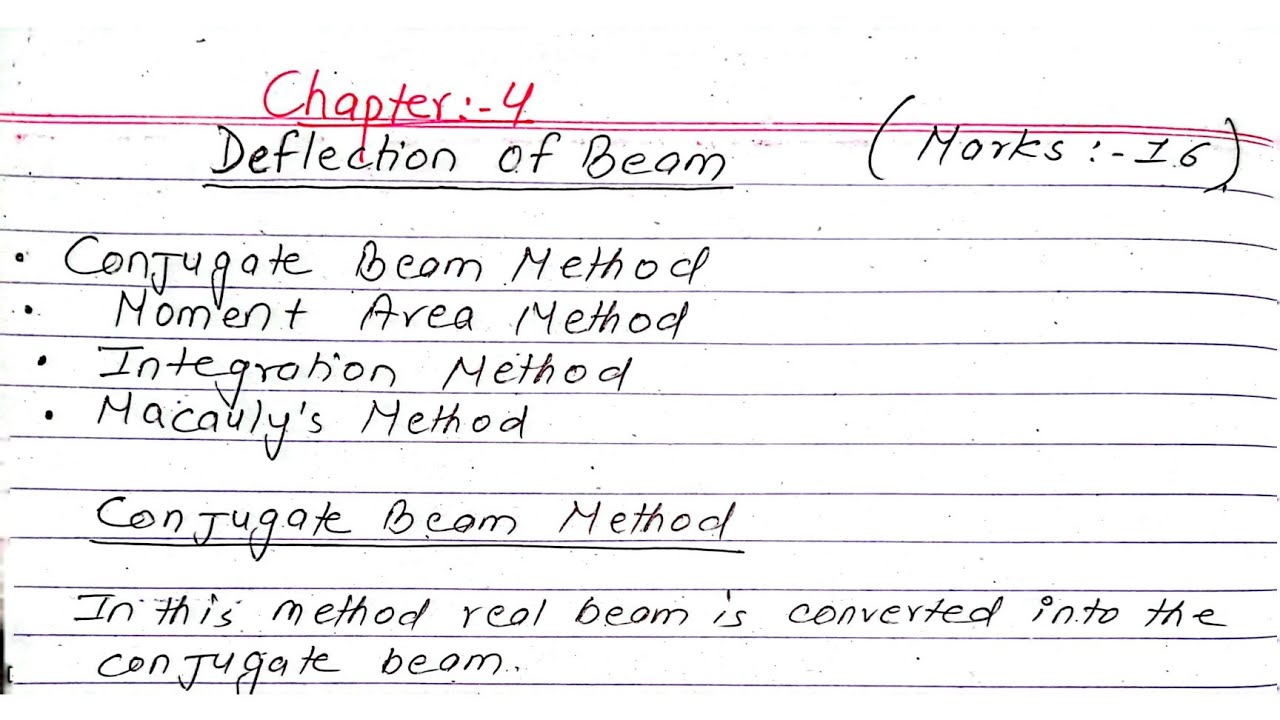 Chapter:-4
Deflection of Beam (Marks:-16)
• Conjugate Beam Method
• Moment Area Method
• Integration Method
• Macauly's Method
Conjugate Beam Method
In this method real beam is converted into the
conjugate beam.